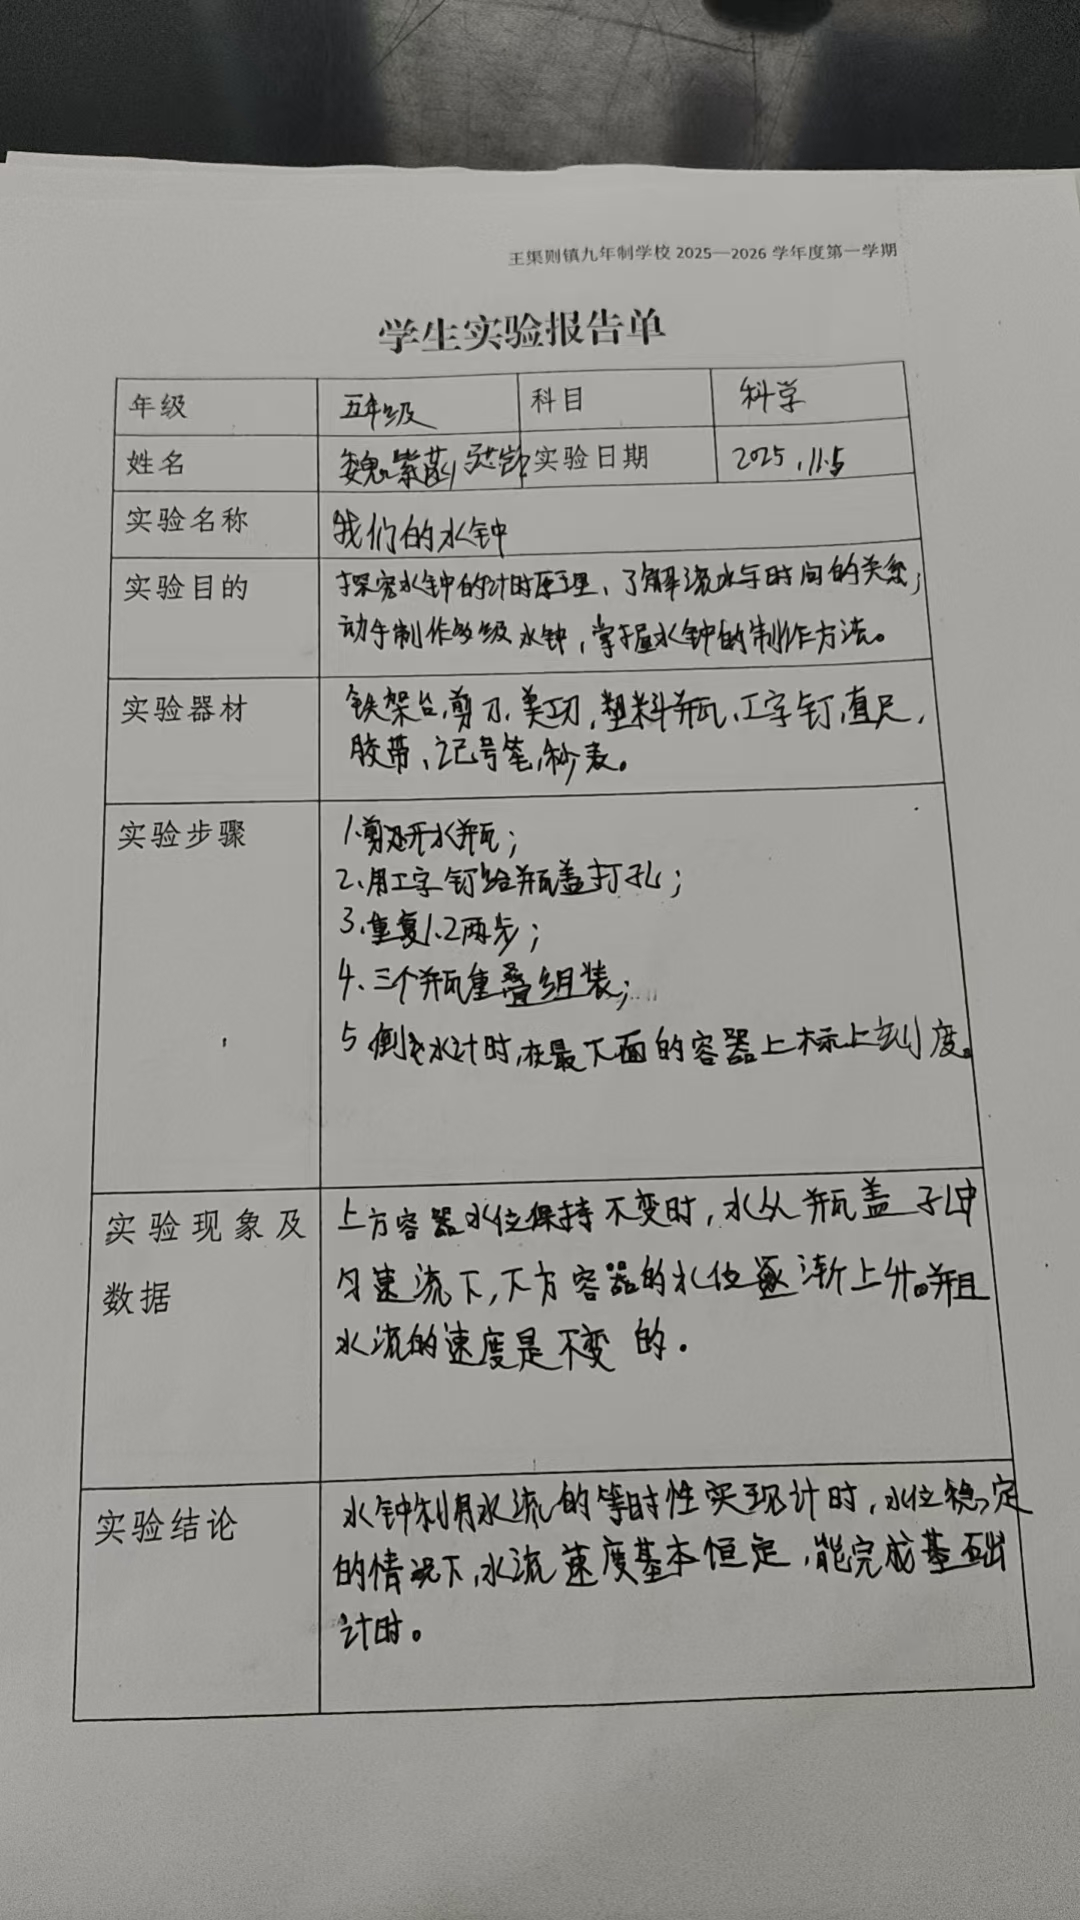 王渠则镇九年制学校 2025—2026 学年度第一学期
学生实验报告单
年级 五年级 科目 科学
姓名 魏紫菡 实验日期 2025.11.5
实验名称 我们的水钟
实验目的 探究水钟的计时原理、了解流水与时间的关系;
动手制作多级水钟,掌握水钟的制作方法。
实验器材 铁架台,剪刀,美工刀,塑料瓶,工字钉,直尺,
胶带,记号笔,秒表。
实验步骤 1.剪开水瓶;
2.用工字钉给瓶盖打孔;
3.重复1.2两步;
4.三个瓶重叠组装;
5 倒水计时,在最下面的容器上标上刻度。
实验现象及 上方容器水位保持不变时,水从瓶盖孔中
数据 匀速流下,下方容器的水位逐渐上升。并且
水流的速度是不变的.
实验结论 水钟利用水流的等时性实现计时,水位稳定
的情况下,水流速度基本恒定,能完成基础
计时。